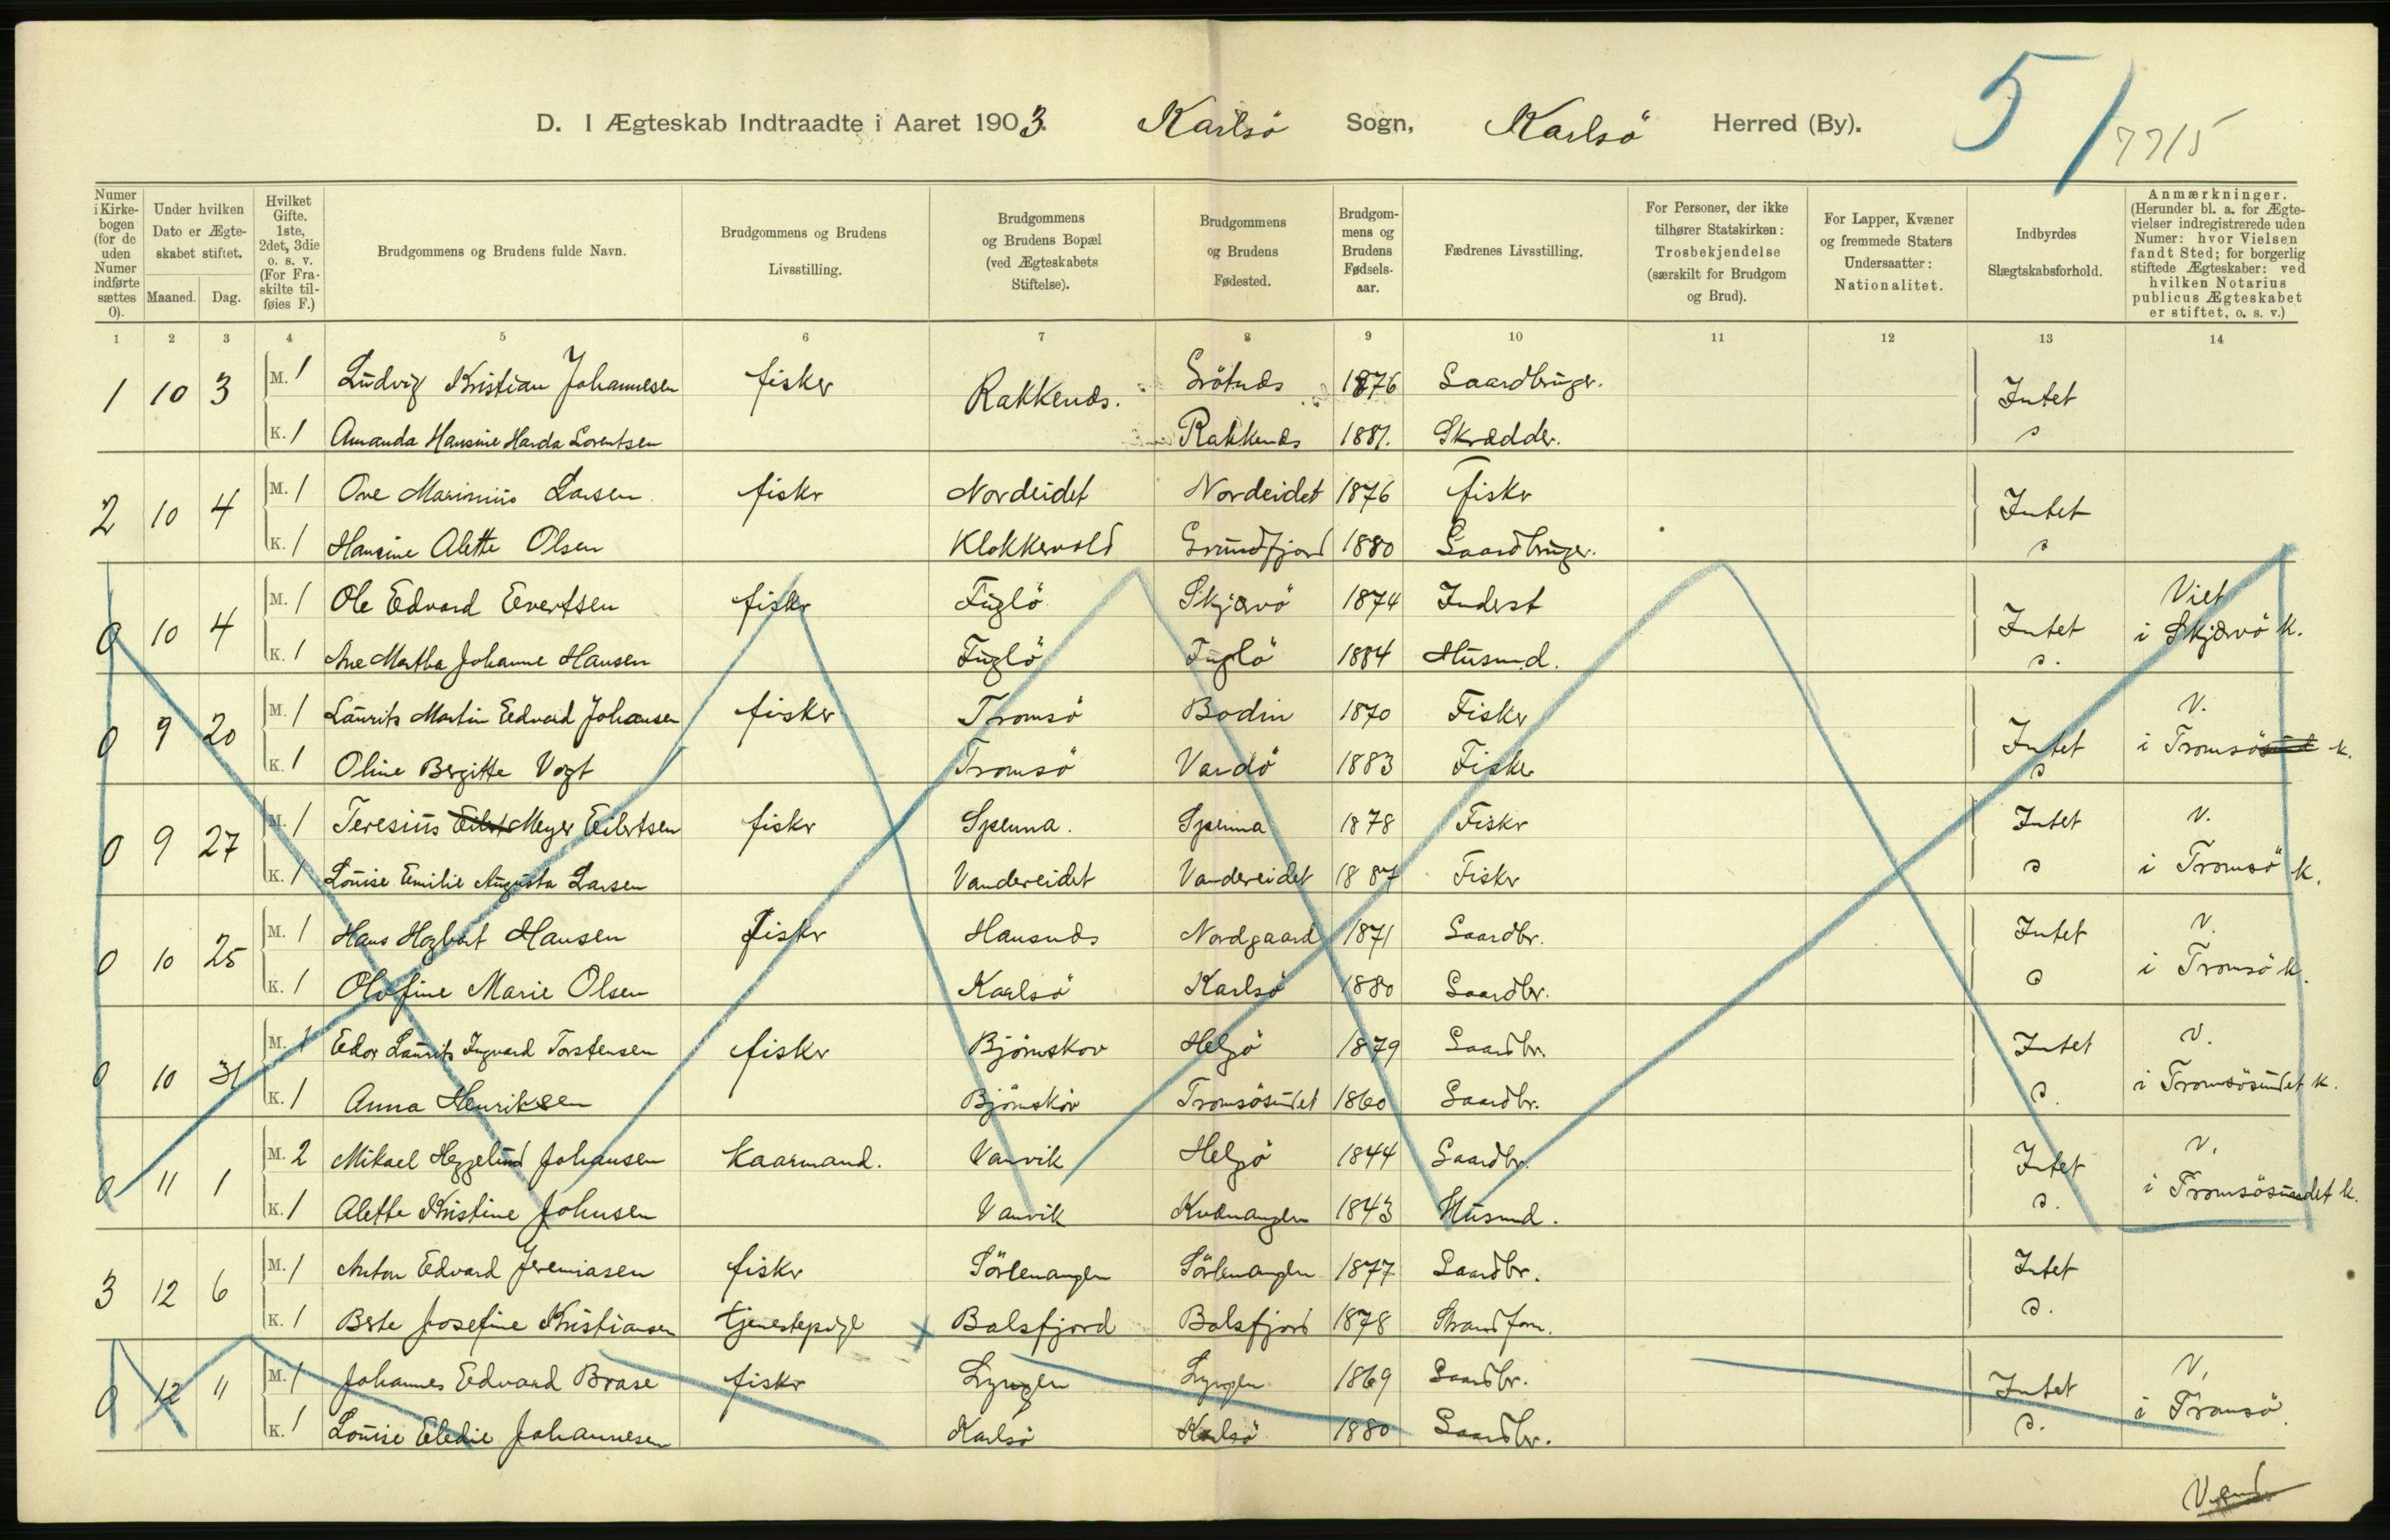 5/
7715
D. I Ægteskab Indtraadte i Aaret 1903. Karlsö Sogn, Karlsö Herred (By).
Numer i Kirkebogen (for de uden Numer indførte sættes 0).
Under hvilken Dato er Ægteskabet stiftet.
Maaned. Dag.
Hvilket Gifte. 1ste, 2det, 3die o. s. v. (For Fraskilte tilføies F.)
Brudgommens og Brudens fulde Navn.
Brudgommens og Brudens Livsstilling.
Brudgommens og Brudens Bopæl (ved Ægteskabets Stiftelse).
Brudgommens og Brudens Fødested.
Brudgommens og Brudens Fødselsaar.
Fædrenes Livsstilling.
For Personer, der ikke tilhører Statskirken: Trosbekjendelse (særskilt for Brudgom og Brud).
For Lapper, Kvæner og fremmede Staters Undersaatter: Nationalitet.
Indbyrdes Slægtskabsforhold.
Anmærkninger. (Herunder bl. a. for Ægtevielser indregistrerede uden Numer: hvor Vielsen fandt Sted; for borgerlig stiftede Ægteskaber: ved hvilken Notarius publicus Ægteskabet er stiftet, o. s. v.)
1 2 3 4 5 6 7 8 9 10 11 12 13 14
1 10 3 M. 1 Ludvig Kristian Johannesen fisker Rakkenæs. Grötnæs 1876 Gaardbruger. Intet
K. 1 Amanda Hansine Harda Lorentsen Rakkenæs 1881. Skrædder. s
2 10 4 M. 1 Ove Marinius Larsen fisker Nordeidet Nordeidet 1876 fisker Intet
K. 1 Hansine Alette Olsen Klokkervold Grundfjord 1880 Gaardbruger. s
0 10 4 M. 1 Ole Edvard Evertsen fisker Fuglö Skjærvö 1874 Inderst Intet Viet
K. 1 Ane Martha Johanne Hansen Fuglö Fuglö 1884 Husmd. s. i Skjærvö k.
0 9 20 M. 1 Laurits Martin Edvard Johansen fisker Tromsö Bodin 1870 Fisker Intet V.
K. 1 Oline Bergitte Vogt Tromsö Vardö 1883 Fisker s i Tromsösund k.
0 9 27 M. 1 Teresius Eilert Meyer Eilertsen fisker Spenna. Spenna 1878 Fisker Intet V.
K. 1 Louise Emilie Augusta Larsen Vandereidet Vandereidet 1887 Fisker s i Tromsö k.
0 10 25 M. 1 Hans Hagbart Hansen fisker Hansnæs Nordgaard 1871 Gaardbr. Intet V.
K. 1 Olofine Marie Olsen Karlsö Karlsö 1880 Gaardbr. s i Tromsö k.
0 10 31 M. 1 Edor Laurits Ingvard Torstensen fisker Björnskov Helgö 1879 Gaardbr. Intet V.
K. 1 Anna Henriksen Björnskov Tromsösundet 1860 Gaardbr. s. i Tromsösundet k.
0 11 1 M. 2 Mikael Heggelund Johansen Kaarmand. Vanvik Helgö 1844 Gaardbr. Intet V.
K. 1 Alette Kristine Johnsen Vanvik Kvænangen 1843 Husmd. s. i Tromsösundet k.
3 12 6 M. 1 Anton Edvard Jeremiasen fisker Sörlenangen Sörlenangen 1877 Gaardbr. Intet
K. 1 Berte Josefine Kristiansen tjenestepige x Balsfjord Balsfjord 1878 Strandform. s.
0 12 " M. 1 Johannes Edvard Brase fisker Lyngen Lyngen 1869 Gaardbr. Intet V.
K. 1 Louise Eledie Johannesen Karlsö Karlsö 1880 Gaardbr. s. i Tromsö.
Vend